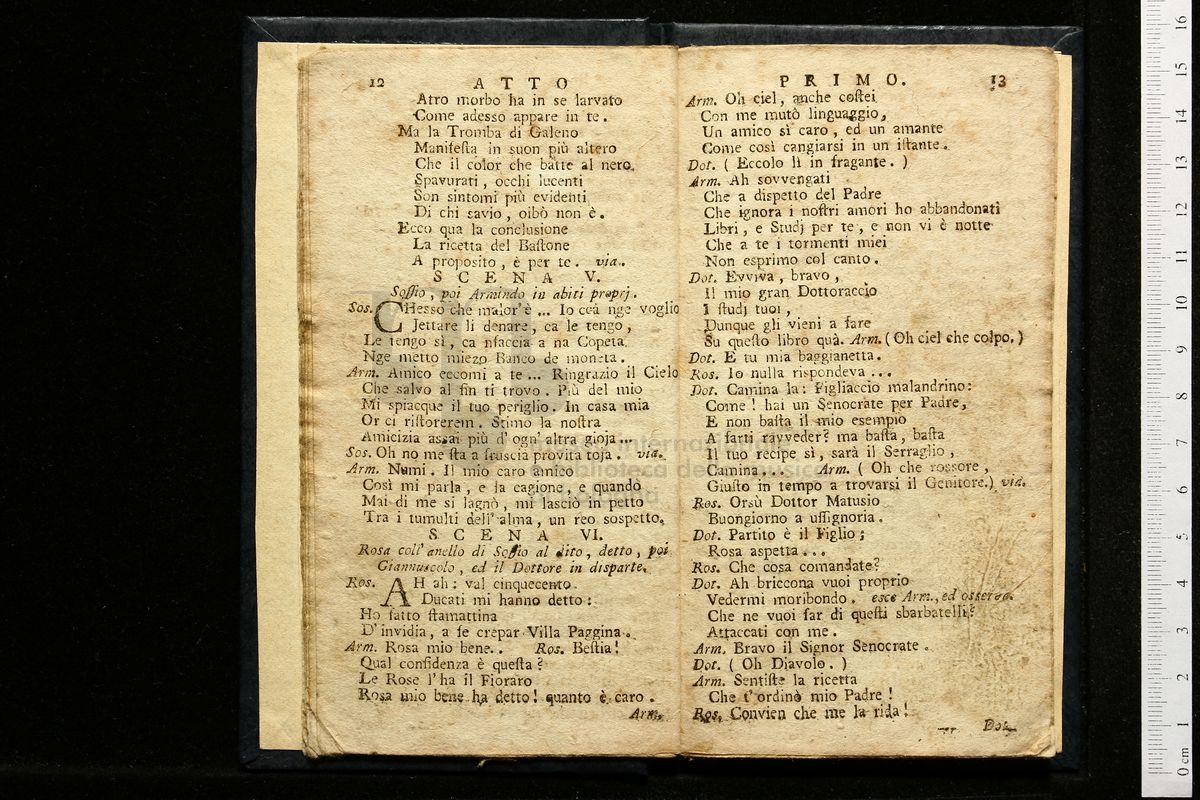 12 ATTO
Atro morbo ha in se larvato
Come adesso appare in te.
Ma la Tromba di Galeno
Manifesta in suon più altero
Che il color che batte al nero.
Spavurati, occhi lucenti
Son sintomi più evidenti
Di chi savio, oibò non è.
Ecco qua la conclusione
La ricetta del Bastone
A proposito, è per te. via.
SCENA V.
Soffio, poi Armindo in abiti proprj.
Sos. CHesso che malor'è ... Io ccà nge voglio
Jettare li denare, ca le tengo,
Le tengo sì, ca nfaccia a na Copeta
Nge metto miezo Banco de moneta.
Arm. Amico eccomi a te ... Ringrazio il Cielo
Che salvo al fin ti trovo. Più del mio
Mi spiacque il tuo periglio. In casa mia
Or ci ristorerem. Stimo la nostra
Amicizia assai più d'ogn'altra gioja ...
Sos. Oh no me sta a fruscia provita toja. via.
Arm. Numi. Il mio caro amico
Così mi parla, e la cagione, e quando
Mai di me si lagnò, mi lasciò in petto
Tra i tumulti dell'alma, un reo sospetto.
SCENA VI.
Rosa coll'anello di Soffio al dito, detto, poi
Giannuscolo, ed il Dottore in disparte.
Ros. AH ah: val cinquecento
Ducati mi hanno detto:
Ho fatto stamattina
D'invidia, a fe crepar Villa Paggina.
Arm. Rosa mio bene.. Ros. Bestia!
Qual confidenza è questa?
Le Rose l'ha il Fioraro
Rosa mio bene ha detto! quanto è caro.
Arm.
PRIMO. 13
Arm. Oh ciel, anche costei
Con me mutò linguaggio,
Un amico sì caro, ed un amante
Come così cangiarsi in un istante.
Dot. (Eccolo lì in fragante.)
Arm. Ah sovvengati
Che a dispetto del Padre
Che ignora i nostri amori ho abbandonati
Libri, e Studj per te, e non vi è notte
Che a te i tormenti miei
Non esprimo col canto.
Dot. Evviva, bravo,
Il mio gran Dottoraccio
I studj tuoi,
Dunque gli vieni a fare
Su questo libro quà. Arm. (Oh ciel che colpo.)
Dot. E tu mia baggianetta.
Ros. Io nulla rispondeva ...
Dot. Camina la: Figliaccio malandrino:
Come! hai un Senocrate per Padre,
E non basta il mio esempio
A farti ravveder? ma basta, basta
Il tuo recipe sì, sarà il Serraglio,
Camina... Arm. (Oh che rossore,
Giusto in tempo a trovarsi il Genitore.) via.
Ros. Orsù Dottor Matusio
Buongiorno a ussignoria.
Dot. Partito è il Figlio;
Rosa aspetta...
Ros. Che cosa comandate?
Dot. Ah briccona vuoi proprio
Vedermi moribondo. esce Arm., ed osserva.
Che ne vuoi far di questi sbarbatelli?
Attaccati con me.
Arm. Bravo il Signor Senocrate.
Dot. (Oh Diavolo.)
Arm. Sentiste la ricetta
Che t'ordinò mio Padre!
Ros. Convien che me la rida!
Dot.